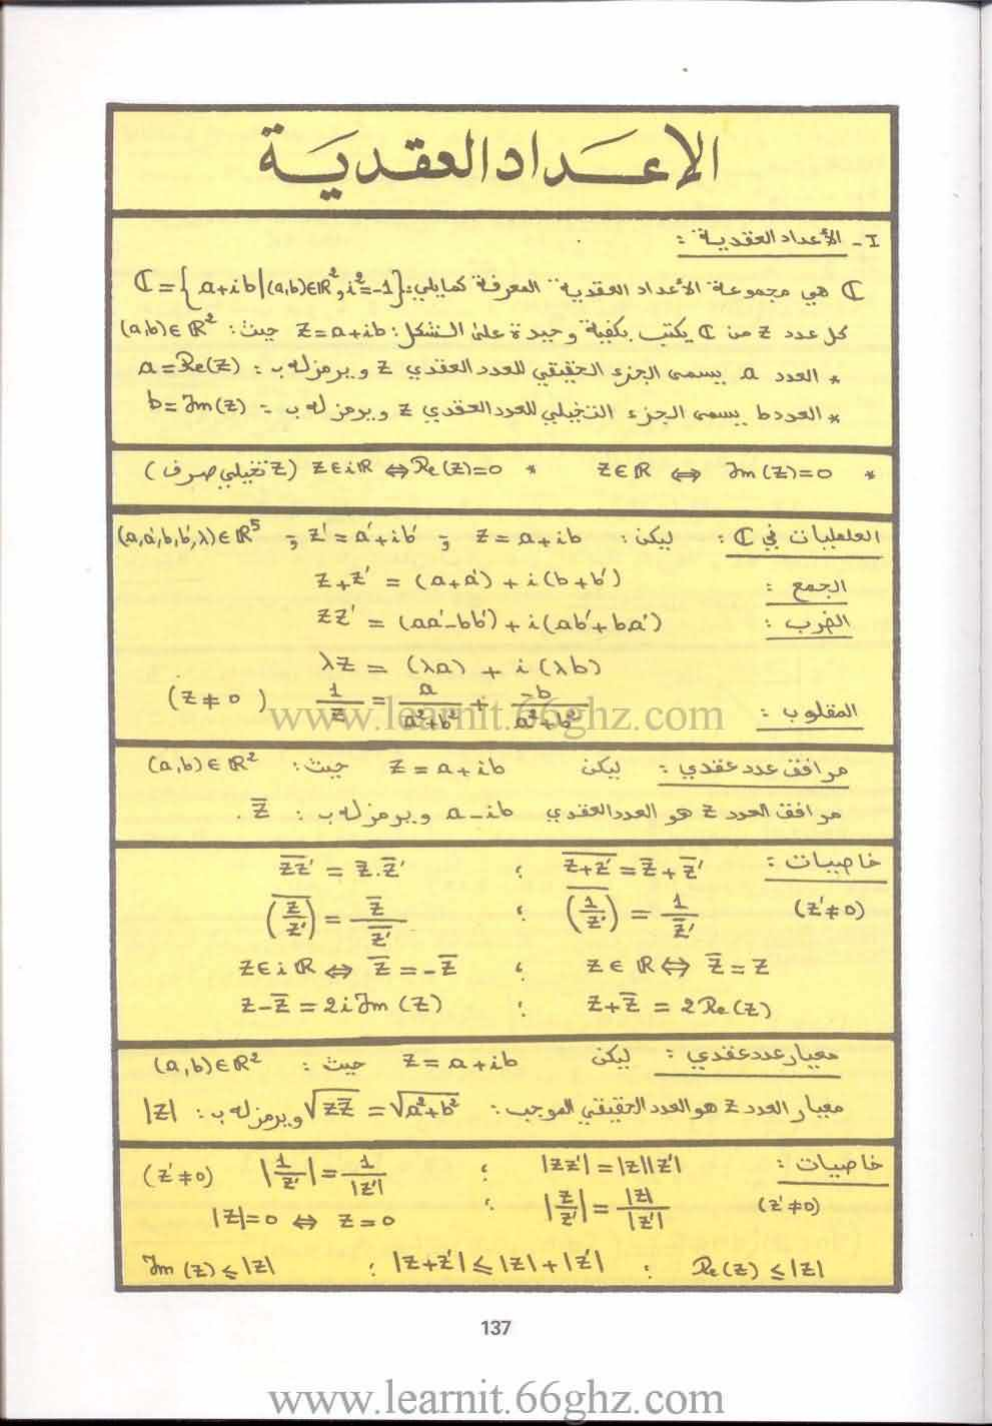 الأعداد العقدية
I - الأعداد العقدية :
ℂ هي مجموعة الأعداد العقدية المعرفة كمايلي: ℂ = {a+ib | (a,b)∈ℝ², i²=-1}
كل عدد z من ℂ يكتب بكيفية وحيدة على الشكل: z = a+ib حيث: (a,b) ∈ ℝ²
* العدد a يسمى الجزء الحقيقي للعدد العقدي z ويرمز له ب : a = Re(z)
* العدد b يسمى الجزء التخيلي للعدد العقدي z ويرمز له ب : b = Im(z)
* z∈ℝ ⇔ Im(z)=0 * z∈iℝ ⇔ Re(z)=0 (z تخيلي صرف)
العمليات في ℂ : ليكن : z = a+ib ; z' = a'+ib' ; (a,a',b,b',λ) ∈ ℝ⁵
الجمع : z+z' = (a+a') + i(b+b')
الضرب : zz' = (aa'-bb') + i(ab'+ba')
λz = (λa) + i(λb)
المقلوب : 1/z = a/(a²+b²) + -b/(a²+b²) (z ≠ 0)
www.learnit.66ghz.com
مرافق عدد عقدي : ليكن z = a+ib حيث : (a,b) ∈ ℝ²
مرافق العدد z هو العدد العقدي a-ib ويرمز له ب : z̅ .
خاصيات : \overline{z+z'} = z̅ + z̅' ; \overline{zz'} = z̅.z̅'
(z' ≠ 0) \overline{(1/z')} = 1/z̅' ; \overline{(z/z')} = z̅/z̅'
z ∈ ℝ ⇔ z̅ = z ; z∈iℝ ⇔ z̅ = -z̅
z+z̅ = 2Re(z) ; z-z̅ = 2iIm(z)
معيار عدد عقدي : ليكن z = a+ib حيث : (a,b)∈ℝ²
معيار العدد z هو العدد الحقيقي الموجب : √(zz̅) = √(a²+b²) ويرمز له ب : |z|
خاصيات : |zz'| = |z||z'| ; |1/z'| = 1/|z'| (z' ≠ 0)
(z' ≠ 0) |z/z'| = |z|/|z'| ; |z|=0 ⇔ z=0
Re(z) ≤ |z| ; |z+z'| ≤ |z|+|z'| ; Im(z) ≤ |z|
137
www.learnit.66ghz.com